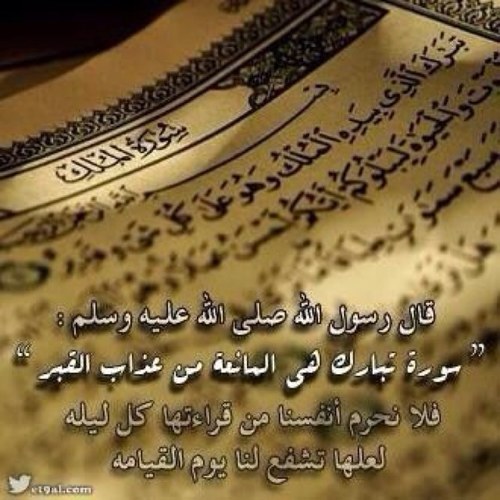 سورة الملك
تبرك الذي بيده الملك وهو على كل شيء
والحيوة ليبلوكم أيكم أحسن
قال رسول الله صلى الله عليه وسلم :
” سورة تبارك هي المانعة من عذاب القبر “
فلا نحرم أنفسنا من قراءتها كل ليله
لعلها تشفع لنا يوم القيامه
et9al.com